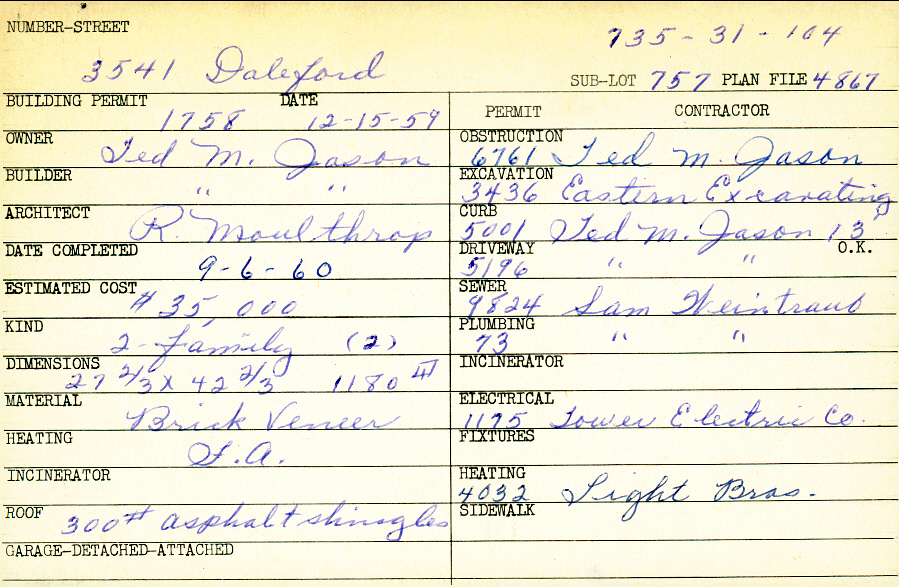 NUMBER-STREET
735-31-104
3541 Daleford
SUB-LOT 757 PLAN FILE 4867
BUILDING PERMIT DATE
1758 12-15-59
PERMIT CONTRACTOR
OWNER
Ted M. Jason
BUILDER
" "
ARCHITECT
R Moulthrop
DATE COMPLETED
9-6-60
ESTIMATED COST
# 35,000
KIND
2-Family (2)
DIMENSIONS
27 2/3 x 42 2/3 1180
MATERIAL
Brick Veneer
HEATING
F.A.
INCINERATOR
ROOF
300# asphalt shingles
GARAGE-DETACHED-ATTACHED
OBSTRUCTION
6761 Ted M. Jason
EXCAVATION
3436 Eastern Excavating
CURB
5001 Ted M. Jason 13'
DRIVEWAY O.K.
5196 " "
SEWER
9824 Sam Weintraub
PLUMBING
73 " "
INCINERATOR
ELECTRICAL
1175 Tower Electric Co.
FIXTURES
HEATING
4032 Light Bros.
SIDEWALK